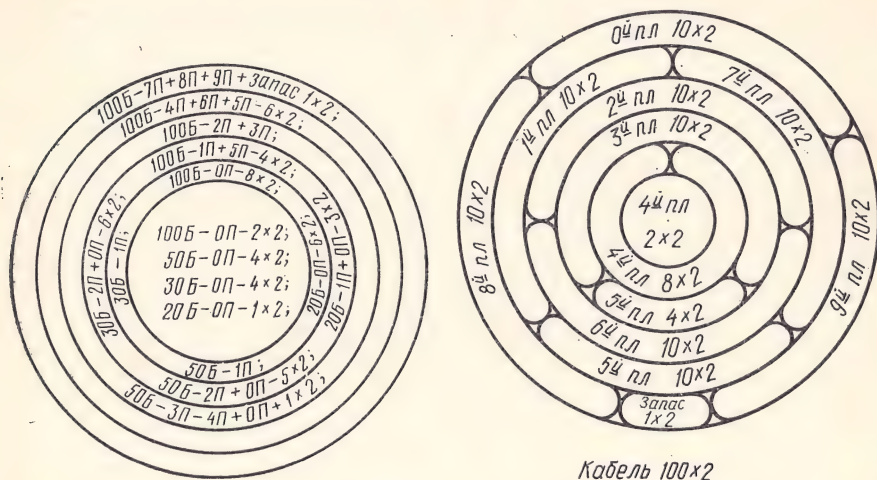 100Б-7П+8П+9П+Запас 1×2;
100Б-4П+6П+5П-6×2;
100Б-2П+3П;
100Б-1П+5П-4×2;
100Б-0П-8×2;
100Б-0П-2×2;
50Б-0П-4×2;
30Б-0П-4×2;
20Б-0П-1×2;
30Б-2П+0П-6×2;
30Б-1П;
20Б-0П-6×2;
20Б-1П+0П-3×2
50Б-1П;
50Б-2П+0П-5×2;
50Б-3П-4П+0П+1×2;
0й пл 10×2
7й пл 10×2
1й пл 10×2
2й пл 10×2
3й пл 10×2
4й пл
2×2
4й пл 8×2
5й пл 4×2
6й пл 10×2
5й пл 10×2
8й пл 10×2
9й пл 10×2
Запас
1×2
Кабель 100×2